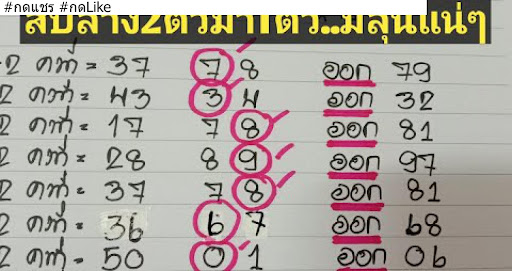 #กดแชร์ #กดLike
สิบล่าง2ตัวมา1ตัว..มีลุ้นแน่ๆ
2 คที่ = 37 7 8 ออก 79
2 คที่ = 43 3 4 ออก 32
2 คที่ = 17 7 8 ออก 81
2 คที่ = 28 8 9 ออก 97
2 คที่ = 37 7 8 ออก 81
2 คที่ = 36 6 7 ออก 68
2 คที่ = 50 0 1 ออก 06